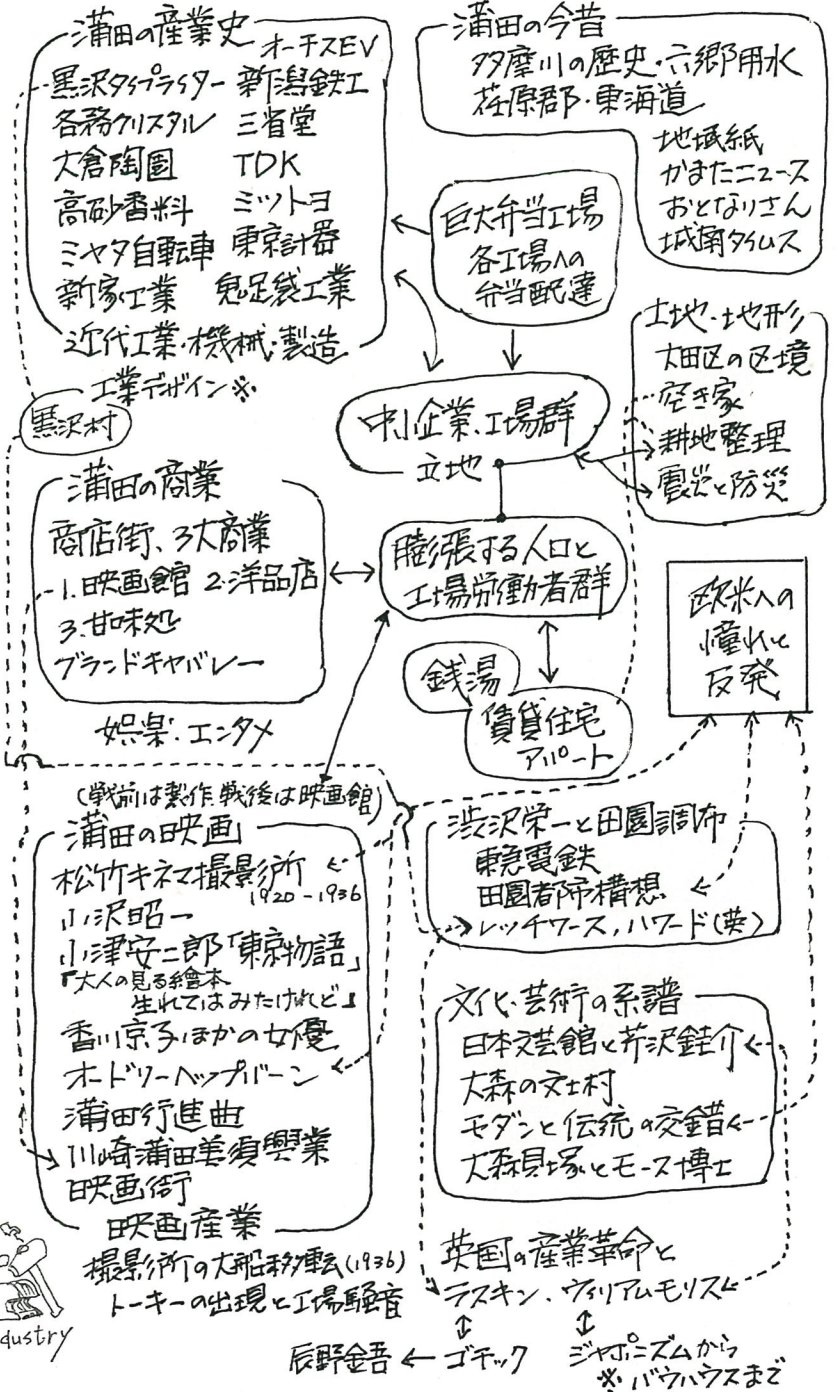 蒲田の産業史
オーチスEV
黒沢タイプライター 新潟鉄工
各務クリスタル 三省堂
大倉陶園 TDK
高砂香料 ミツトヨ
ミヤタ自転車 東京計器
新家工業 兎足袋工業
近代工業・機械・製造
工業デザイン※
黒沢村
蒲田の今昔
多摩川の歴史・六郷用水
荏原郡・東海道
地域紙
かまたニュース
おとなりさん
城南タイムス
巨大弁当工場
各工場への
弁当配達
土地・地形
大田区の区境
空き家
耕地整理
震災と防災
中小企業、工場群
立地
蒲田の商業
商店街、3大商業
1.映画館 2.洋品店
3.甘味処
グランドキャバレー
娯楽・エンタメ
膨張する人口と
工場労働者群
銭湯
賃貸住宅
アパート
欧米への
憧れと
反発
(戦前は製作、戦後は映画館)
蒲田の映画
松竹キネマ撮影所
1920-1936
小沢昭一
小津安二郎「東京物語」
『大人の見る繪本
生れてはみたけれど』
香川京子ほかの女優
オードリーヘップバーン
蒲田行進曲
川崎蒲田美須興業
映画街
映画産業
撮影所の大船移転(1936)
トーキーの出現と工場騒音
渋沢栄一と田園調布
東急電鉄
田園都市構想
レッチワース,ハワード(英)
文化・芸術の系譜
日本文芸館と芹沢銈介
大森の文士村
モダンと伝統の交錯
大森貝塚とモース博士
英国の産業革命と
ラスキン、ウィリアムモリス
辰野金吾 ← ゴチック
ジャポニズムから
※バウハウスまで
dustry